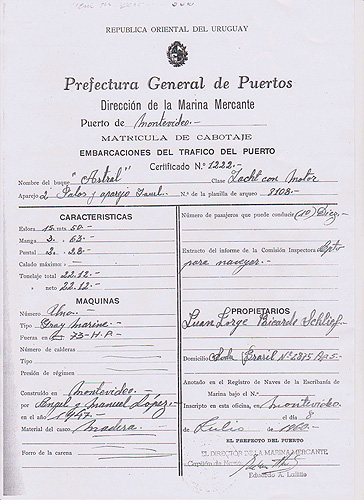 REPUBLICA ORIENTAL DEL URUGUAY
Prefectura General de Puertos
Dirección de la Marina Mercante
Puerto de Montevideo.-
MATRICULA DE CABOTAJE
EMBARCACIONES DEL TRAFICO DEL PUERTO
Certificado N.º 1222.-
Nombre del buque "Astral" Clase Yacht con Motor
Aparejo 2 Palos y aparejo N.º de la planilla de arqueo 2108.-
CARACTERISTICAS
Eslora 15 mts 50.-
Manga 3. 63.-
Puntal 2. 28.-
Calado máximo
Tonelaje total 22.12.-
neto 22.12.-
MAQUINAS
Número Uno.-
Tipo Gray Marine.-
Fuerza en 73 H.P.-
Número de calderas
Tipo
Presión de régimen
Construído en Montevideo.-
por Angel y Manuel López.-
en el año 1947.-
Material del casco Madera.-
Forro de la carena
Número de pasajeros que puede conducir (10) Diez.-
Extracto del informe de la Comisión Inspectora Apto
para navegar.-
PROPIETARIOS
Juan Jorge Ricardo Schlief
Domicilio Avda Brasil Nº 2875 Ap 5-
Anotado en el Registro de Naves de la Escribanía de
Marina bajo el N.º
Inscripto en esta oficina, en Montevideo
el día 8
de Julio de 1960.-
EL PREFECTO DEL PUERTO
EL DIRECTOR DE LA MARINA MERCANTE
Capitán de
Eduardo A.